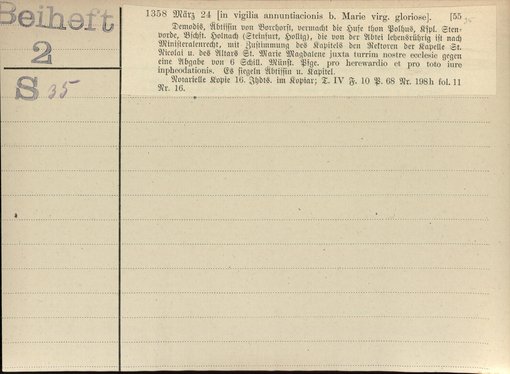 Beiheft
2
S 35
1358 März 24 [in vigilia annuntiacionis b. Marie virg. gloriose]. [55
35
Demodis, Äbtissin von Borchorst, vermacht die Hufe thon Polhus, Kspl. Sten-
vorde, Bschft. Holnach (Steinfurt, Hollig), die von der Abtei lehensrührig ist nach
Ministeralenrecht, mit Zustimmung des Kapitels den Rektoren der Kapelle St.
Nicolai u. des Altars St. Marie Magdalene juxta turrim nostre ecclesie gegen
eine Abgabe von 6 Schill. Münst. Pfge. pro herewardio et pro toto iure
inpheodationis. Es siegeln Äbtissin u. Kapitel.
Notarielle Kopie 16. Jhdts. im Kopiar; T. IV F. 10 P. 68 Nr. 198h fol. 11
Nr. 16.